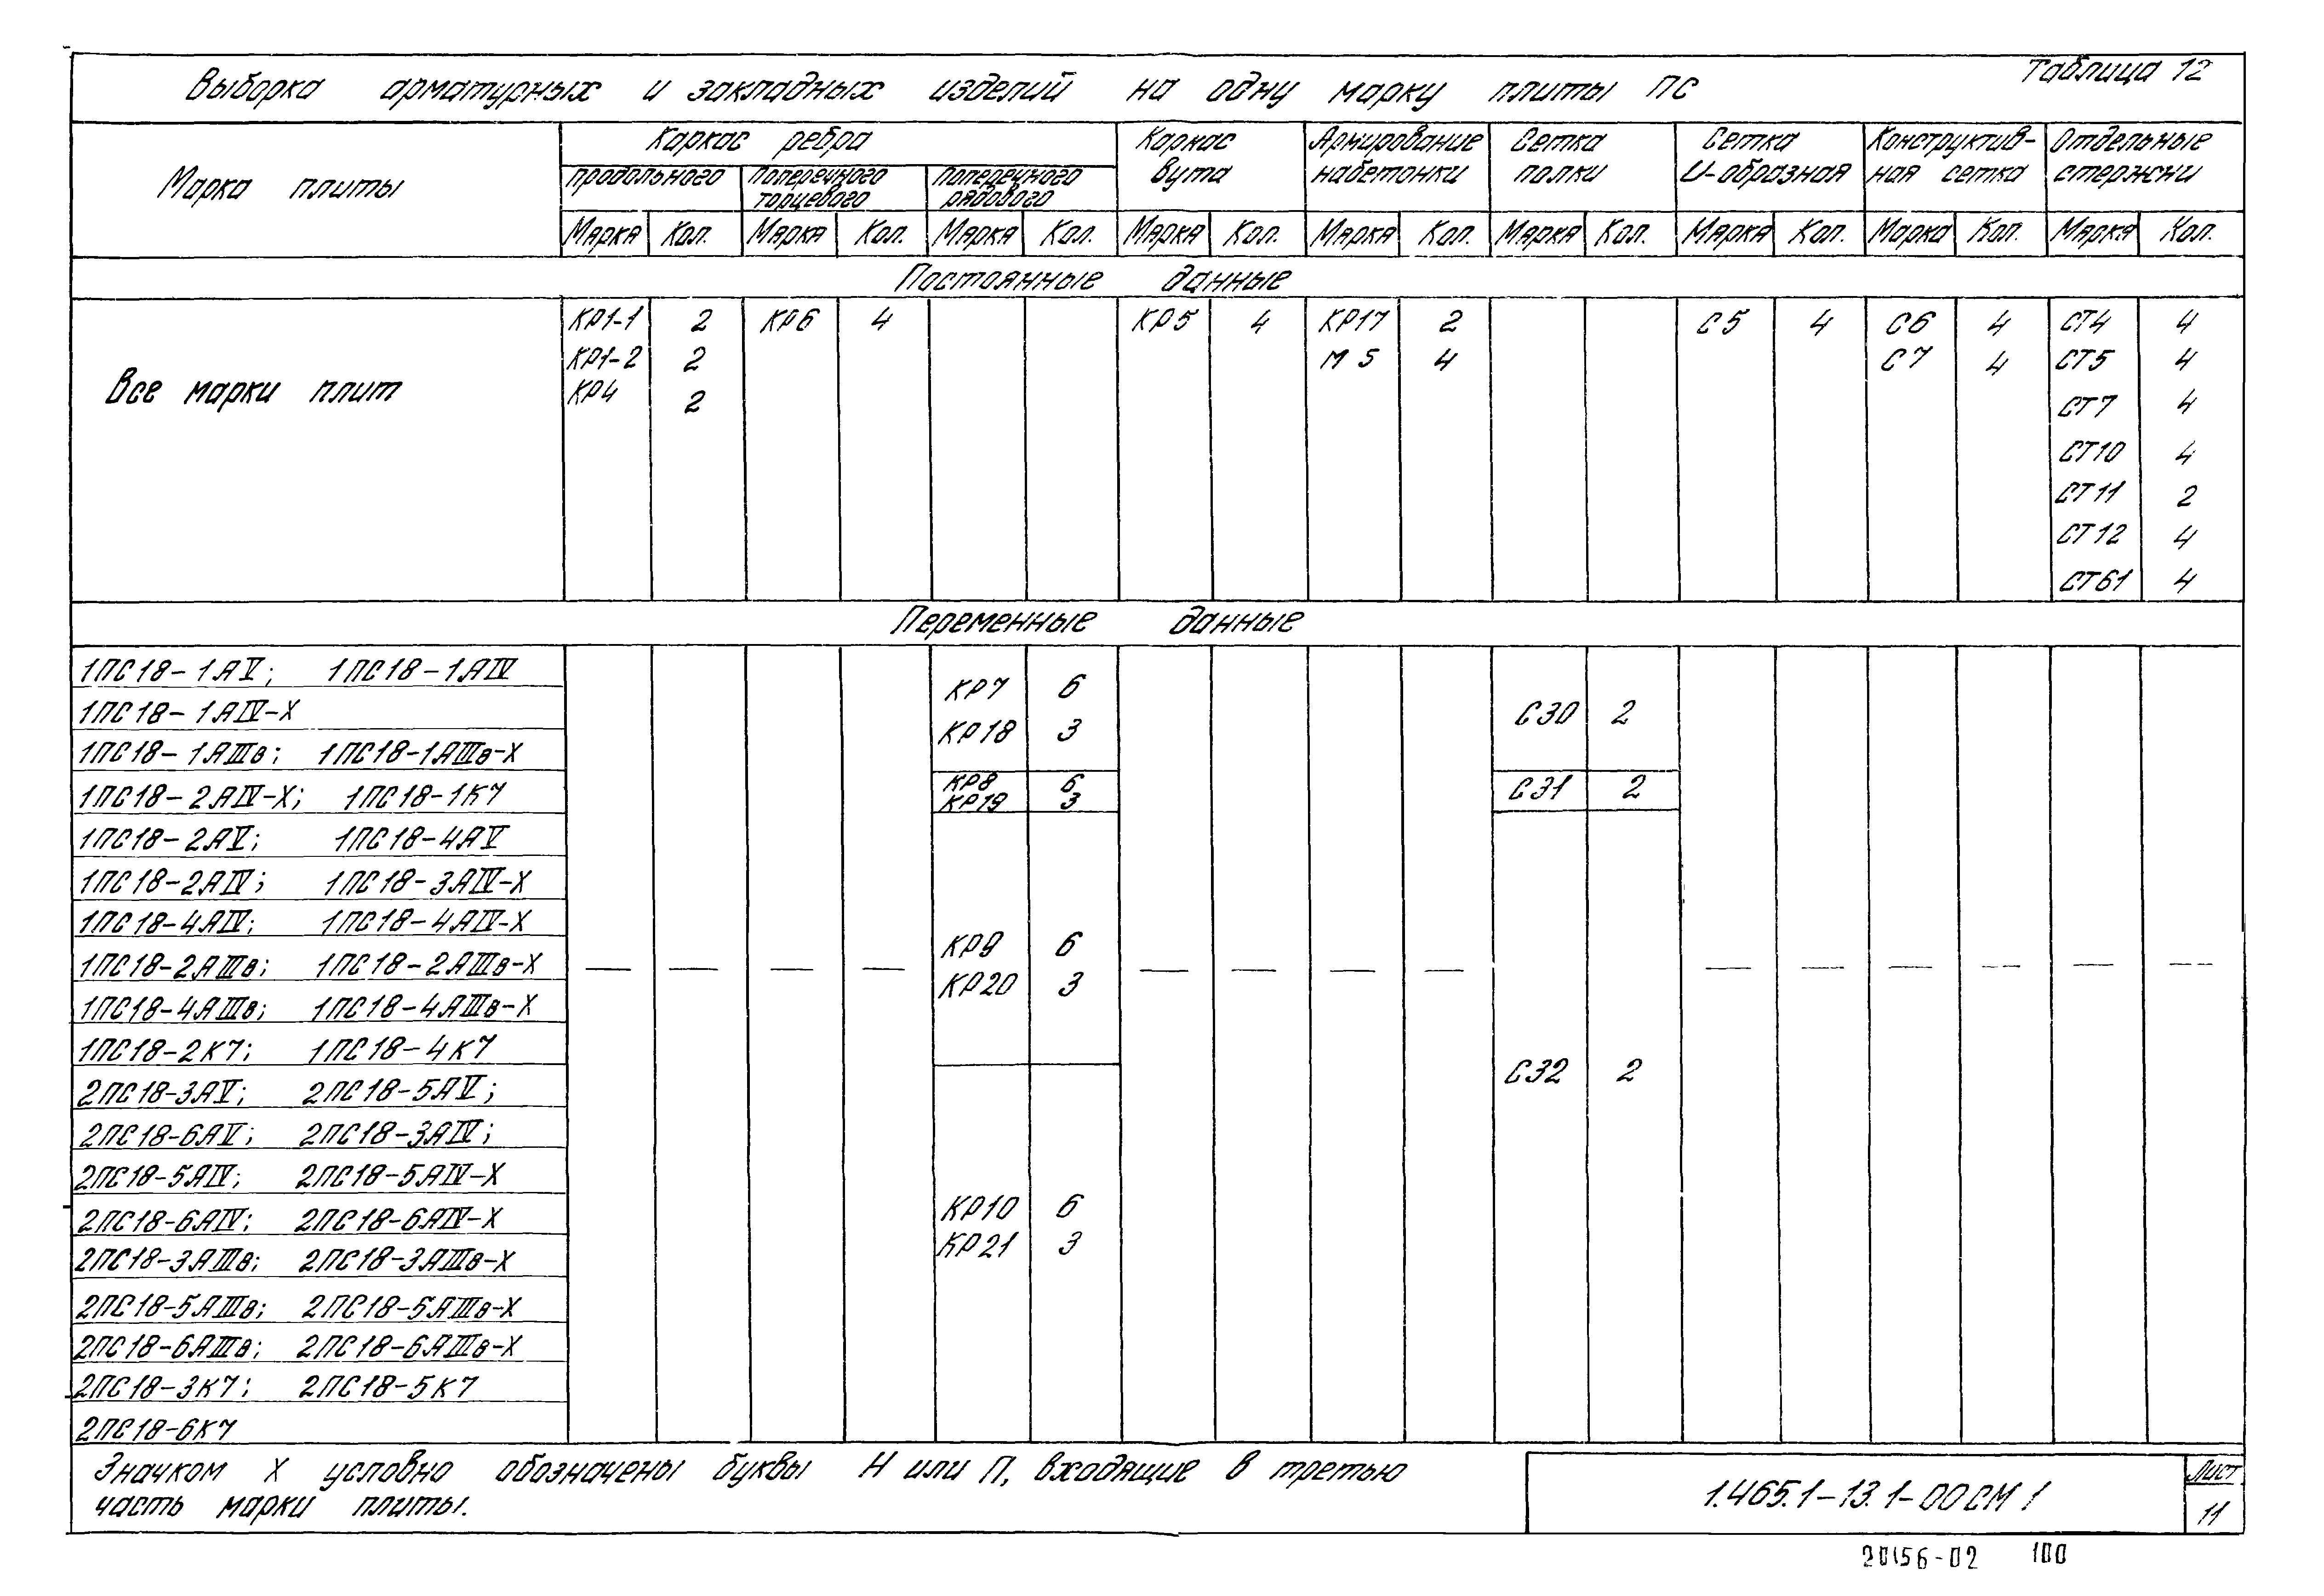 Таблица 12
Выборка арматурных и закладных изделий на одну марку плиты ПС
Марка плиты
Каркас ребра
продольного
поперечного торцевого
поперечного рядового
Каркас вута
Армирование набетонки
Сетка полки
Сетка U-образная
Конструктив-ная сетка
Отдельные стержни
Марка Кол. Марка Кол. Марка Кол. Марка Кол. Марка Кол. Марка Кол. Марка Кол. Марка Кол. Марка Кол.
Постоянные данные
Все марки плит
КР1-1 2 КР6 4 КР5 4 КР17 2 С5 4 С6 4 СТ4 4
КР1-2 2 М5 4 С7 4 СТ5 4
КР4 2 СТ7 4
СТ10 4
СТ11 2
СТ12 4
СТ61 4
Переменные данные
1ПС18-1АV; 1ПС18-1АIV
1ПС18-1АIV-Х
1ПС18-1АIIIв; 1ПС18-1АIIIв-Х
КР7 6
КР18 3
С30 2
1ПС18-2АIV-Х; 1ПС18-1К7
КР8 6
КР19 3
С31 2
1ПС18-2АV; 1ПС18-4АV
1ПС18-2АIV; 1ПС18-3АIV-Х
1ПС18-4АIV; 1ПС18-4АIV-Х
1ПС18-2АIIIв; 1ПС18-2АIIIв-Х
1ПС18-4АIIIв; 1ПС18-4АIIIв-Х
1ПС18-2К7; 1ПС18-4К7
КР9 6
КР20 3
— — — — — — — — — — — — — —
2ПС18-3АV; 2ПС18-5АV;
2ПС18-6АV; 2ПС18-3АIV;
2ПС18-5АIV; 2ПС18-5АIV-Х
2ПС18-6АIV; 2ПС18-6АIV-Х
2ПС18-3АIIIв; 2ПС18-3АIIIв-Х
2ПС18-5АIIIв; 2ПС18-5АIIIв-Х
2ПС18-6АIIIв; 2ПС18-6АIIIв-Х
2ПС18-3К7; 2ПС18-5К7
2ПС18-6К7
КР10 6
КР21 3
С32 2
Значком Х условно обозначены буквы Н или П, входящие в третью
часть марки плиты.
1.465.1-13.1-00СМ1
Лист
11
20156-02 100